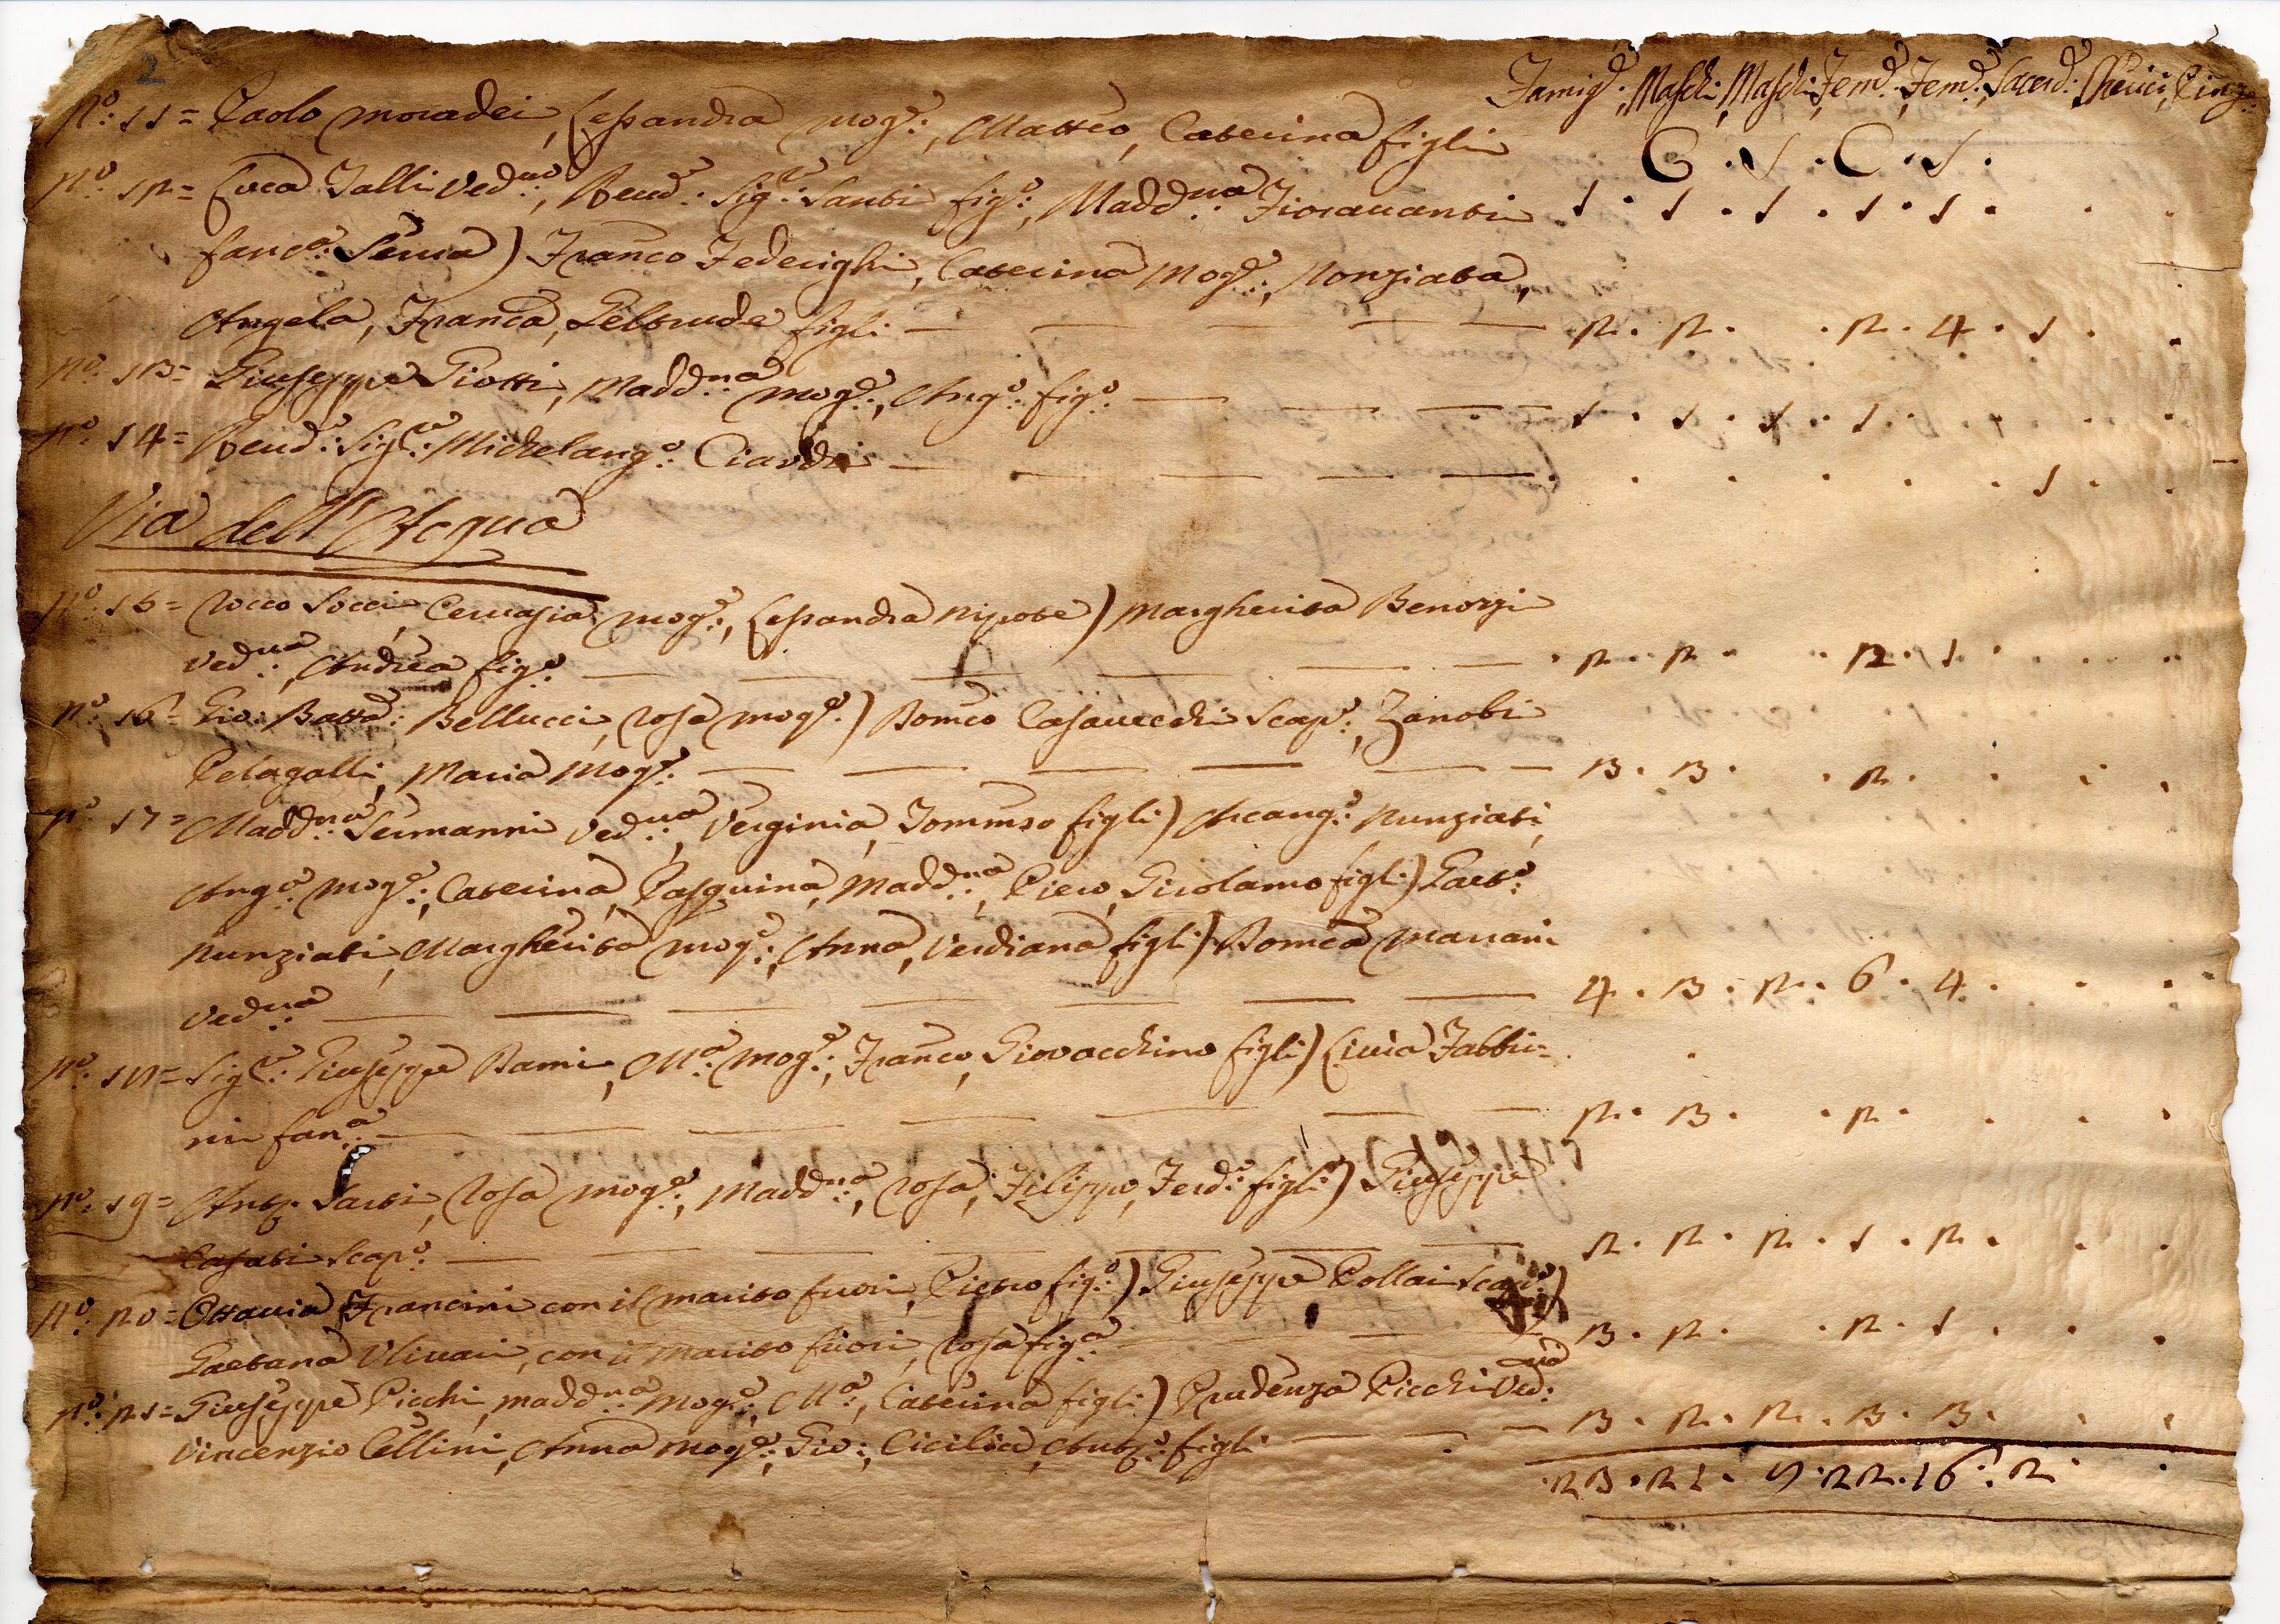 2
Famig.e, Maschi, Maschi, Fem.e, Fem.e, Sacerd.i, Cherici, Pinz.
C . S . C . S .
N.o 11 = Paolo Moradei, Lessandra mog.e, Matteo, Caterina figli 1 . 1 . 1 . 1 . 1 .
N.o 12 = Luca Falli Ved.uo, Reud.o Sig.re Santi fig.o, Madd.na Fioravanti
fanc.a Serva) Fran.co Federighi, Caterina Mog.e, Nonziata,
Angela, Fran.ca, Geltrude figli 2 . 2 . . 2 . 4 . 1 .
N.o 13 = Giuseppe Giotti, Madd.na mog.e, Ang.o fig.o 1 . 1 . 1 . 1 .
N.o 14 = Reud.o Sig.re Michelang.o Ciardi 1 .
Via dell'Acqua
N.o 15 = Rocco Socci, mog.e, Lessandra nipote) Margherita Benozzi
Ved.ua, Andrea fig.o 2 . 2 . . 2 . 1 .
N.o 16 = Gio: Batta: Bellucci, Rosa mog.e) Dom.co Casavecchi Scap.o, Zanobi
Pelagalli, Maria Mog.e 3 . 3 . . 2 .
N.o 17 = Madd.na Sermanni Ved.ua, Verginia, Tommaso figli) Arcang.o Nunziati,
Ang.a mog.e, Caterina, Pasquina, Madd.na, Piero, Girolamo figli) Gaet.o
Nunziati, Margherita mog.e, Anna, Verdiana figli) Dom.ca Mariani
Ved.ua 4 . 3 . 2 . 6 . 4 .
N.o 18 = Sig.re Giuseppe Dami, M.a mog.e, Fran.co, Giovacchino figli) Livia Fabbri=
ni fan.a 2 . 3 . . 2 .
N.o 19 = Ant.o Sarti, Rosa mog.e, Madd.na, Rosa, Filippo, Ferd.o figli) Giuseppe
Casati Scap.o 2 . 2 . 2 . 1 . 2 .
N.o 20 = Ottavia Francini con il marito fuori, Pietro fig.o) Giuseppe Pollai Scap.o)
Gaetana Ulivari, con il marito fuori, Rosa fig.a 3 . 2 . . 2 . 1 .
N.o 21 = Giuseppe Picchi, Madd.na mog.e, M.a, Caterina figli) Prudenza Picchi Ved.ua
Vincenzio Cellini, Anna mog.e, Gio:, Cicilia, Ant.o figli 3 . 2 . 2 . 3 . 3 .
23 . 21 . 9 . 22 . 16 . 2 .